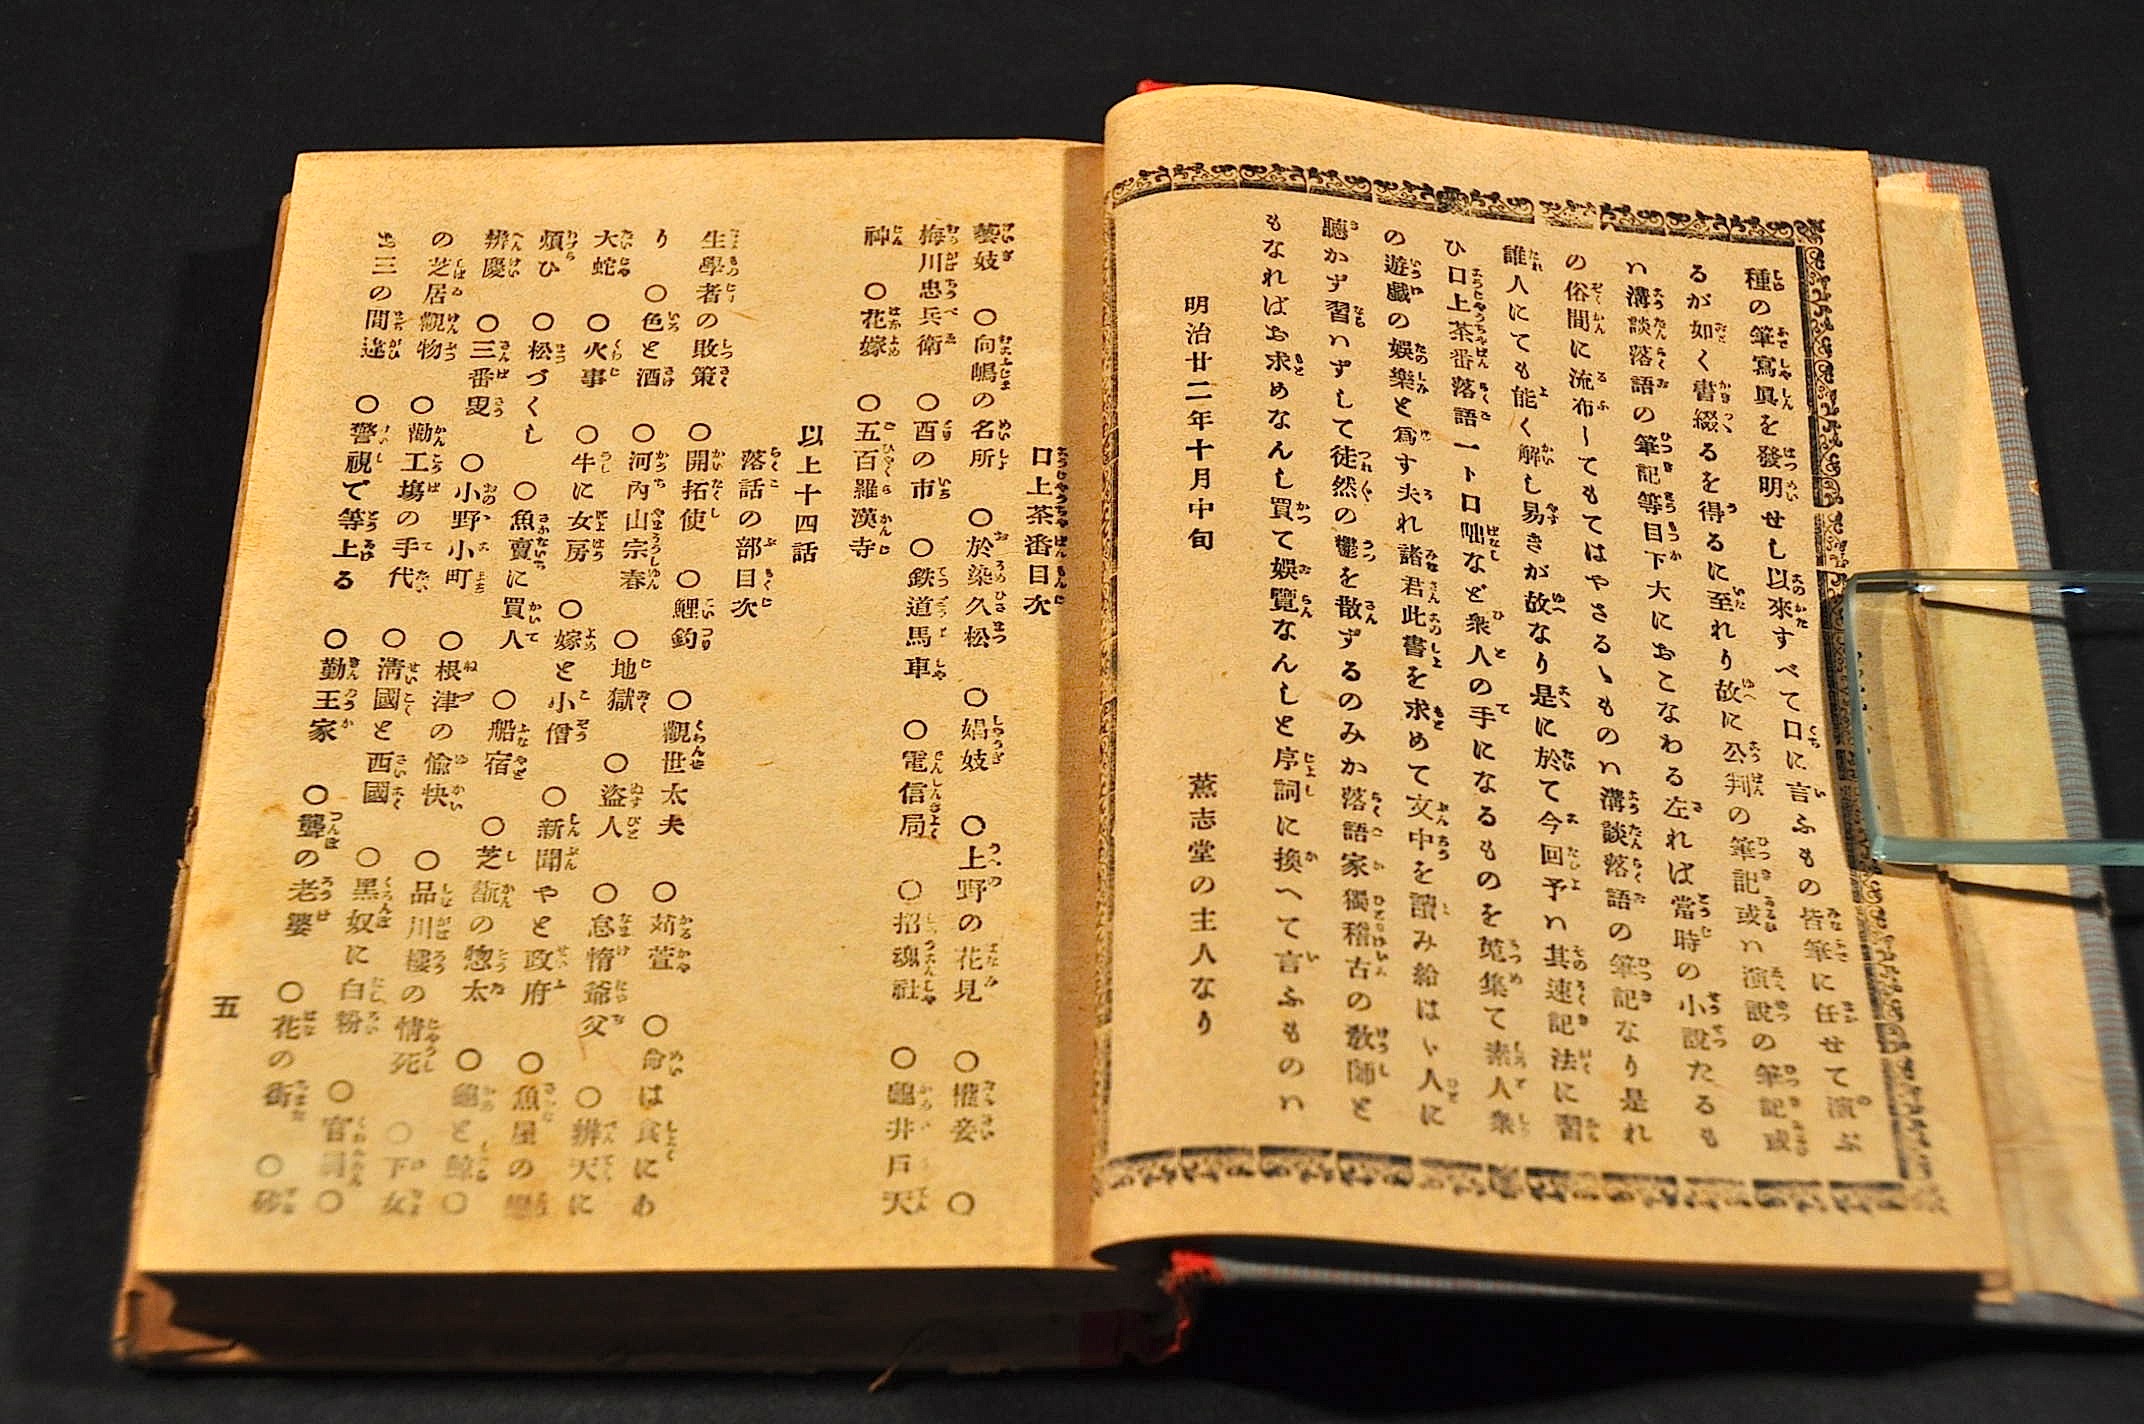 種の筆寫眞を發明せし以來すべて口に言ふもの皆筆に任せて演ぶ
るが如く書綴るを得るに至れり故に公判の筆記或ハ演說の筆記或
ハ溝談落語の筆記等目下大におこなわる左れば當時の小說たるも
の俗間に流布してもてはやさるゝものハ溝談落語の筆記なり是れ
誰人にても能く解し易きが故なり是に於て今回予ハ其速記法に習
ひ口上茶番落語一ト口咄など衆人の手になるものを蒐集て素人衆
の遊戯の娯樂と爲す夫れ諸君此書を求めて文中を讀み給はゞ人に
聽かず習ハずして徒然の鬱を散ずるのみか落語家獨稽古の敎師と
もなればお求めなんし買て娯覽なんしと序詞に換へて言ふものハ
明治廿二年十月中旬 薫志堂の主人なり
口上茶番目次
藝妓 〇向嶋の名所 〇於染久松 〇娼妓 〇上野の花見 〇權妾 〇
梅川忠兵衛 〇酉の市 〇鉄道馬車 〇電信局 〇招魂社 〇龜井戶天
神 〇花嫁 〇五百羅漢寺
以上十四話
落話の部目次
生學者の敗策 〇開拓使 〇鯉釣 〇觀世太夫 〇苅萱 〇命は食にあ
り 〇色と酒 〇河內山宗春 〇地獄 〇盗人 〇怠惰爺父 〇辨天に
大蛇 〇火事 〇牛に女房 〇嫁と小僧 〇新聞やと政府 〇魚屋の
煩ひ 〇松づくし 〇魚賣に買人 〇船宿 〇芝翫の惣太 〇龜と鯨 〇
辨慶 〇三番叟 〇小野小町 〇根津の愉快 〇品川樓の情死 〇下女
の芝居觀物 〇勸工塲の手代 〇淸國と西國 〇黑奴に白粉 〇官員 〇
三の間違 〇警視で等上る 〇勤王家 〇聾の老婆 〇花の街 〇砂
五